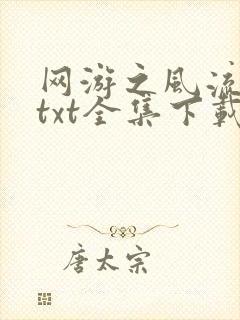 网游之风流
txt全集下载
唐太宗